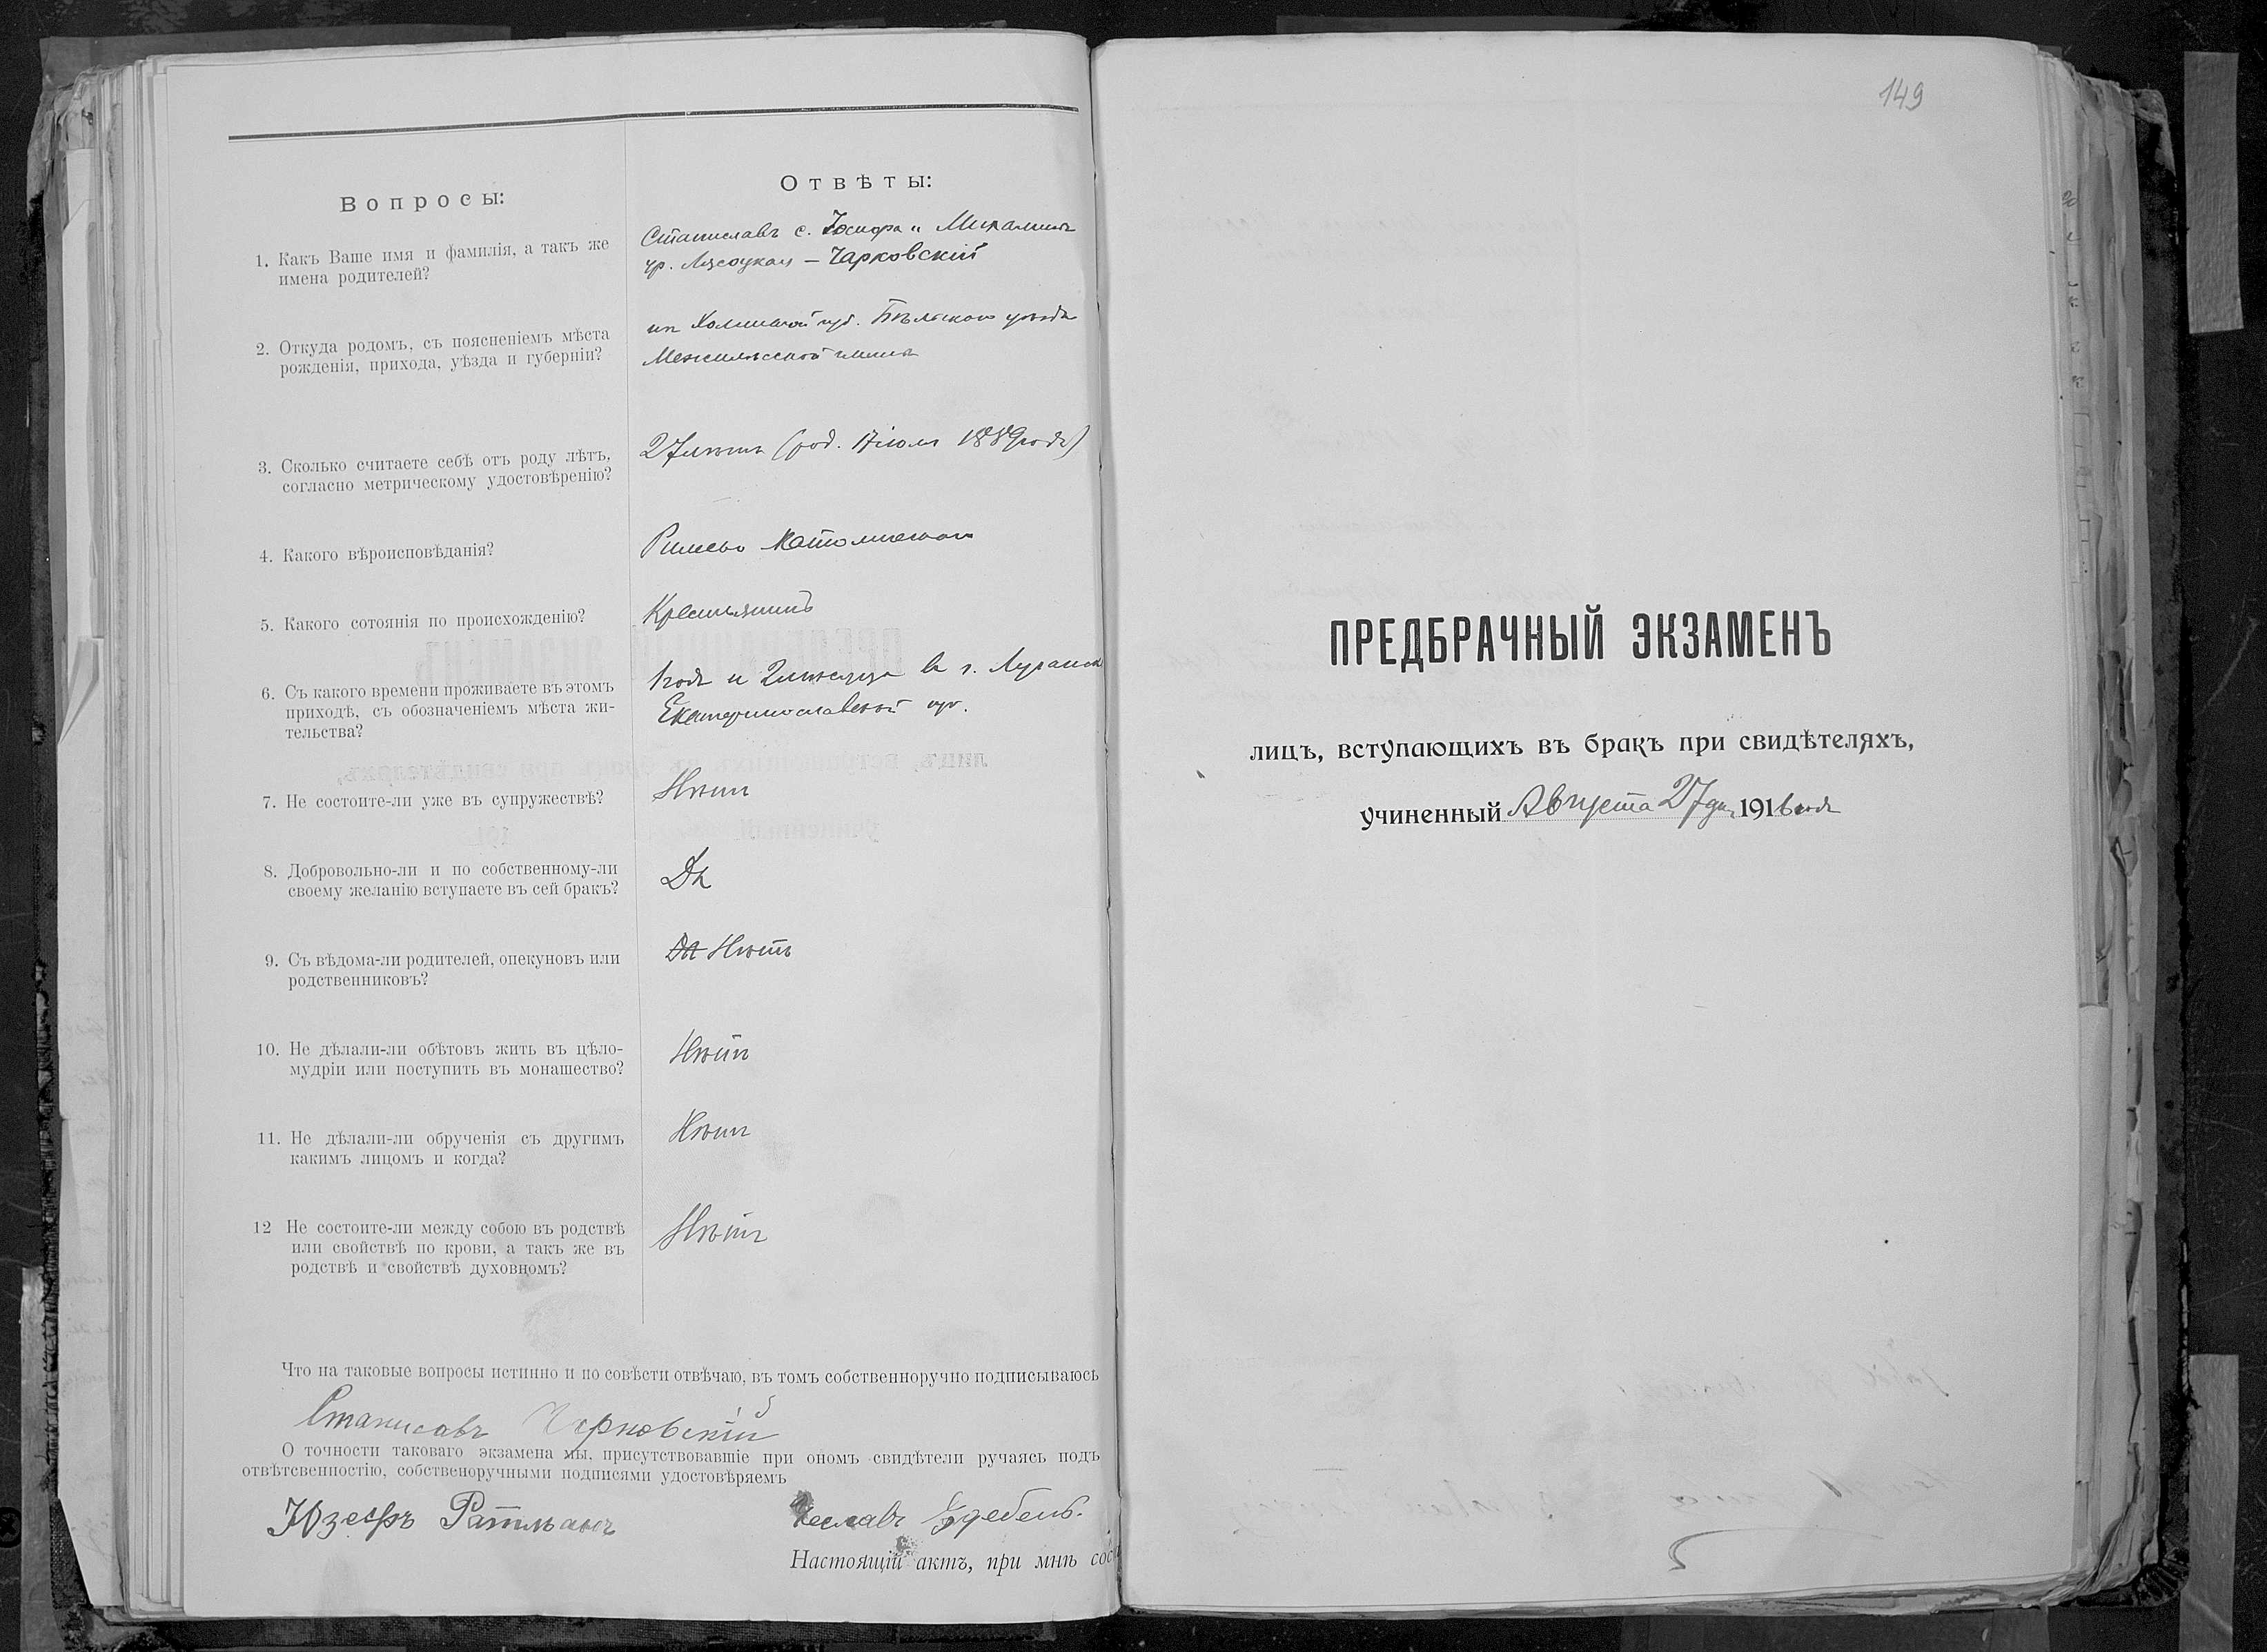 Вопросы:
Отвѣты:
1. Какъ Ваше имя и фамилія, а такъ же
имена родителей?
Станиславъ с. Іосифа и
Чарковскій
2. Откуда родомъ, съ поясненіемъ мѣста
рожденія, прихода, уѣзда и губерніи?
из Холмской губ. Бѣльскаго уѣзда
гмины
3. Сколько считаете себѣ отъ роду лѣтъ,
согласно метрическому удостовѣренію?
27 лѣтъ (род. 17 іюля 1889 года)
4. Какого вѣроисповѣданія?
Римско Католическаго
5. Какого сотоянія по происхожденію?
Крестьянинъ
6. Съ какого времени проживаете въ этомъ
приходѣ, съ обозначеніемъ мѣста жи-
тельства?
1 годъ и 2 мѣсяца в г. Луганск
Екатеринославской губ.
7. Не состоите-ли уже въ супружествѣ?
Нѣтъ
8. Добровольно-ли и по собственному-ли
своему желанію вступаете въ сей бракъ?
Да
9. Съ вѣдома-ли родителей, опекуновъ или
родственниковъ?
Да Нѣтъ
10. Не дѣлали-ли обѣтовъ жить въ цѣло-
мудріи или поступить въ монашество?
Нѣтъ
11. Не дѣлали-ли обрученія съ другимъ
какимъ лицомъ и когда?
Нѣтъ
12 Не состоите-ли между собою въ родствѣ
или свойствѣ по крови, а такъ же въ
родствѣ и свойствѣ духовномъ?
Нѣтъ
Что на таковые вопросы истинно и по совѣсти отвѣчаю, въ томъ собственноручно подписываюсь
Станиславъ Чарковскій
О точности таковаго экзамена мы, присутствовавшіе при ономъ свидѣтели ручаясь подъ
отвѣтсвенностію, собственоручными подписями удостовѣряемъ
Юзефъ
Чеславъ
Настоящій актъ, при мнѣ сос
149
ПРЕДБРАЧНЫЙ ЭКЗАМЕНЪ
лицъ, вступающихъ въ бракъ при свидѣтеляхъ,
учиненный Августа 27 дня 1916 года